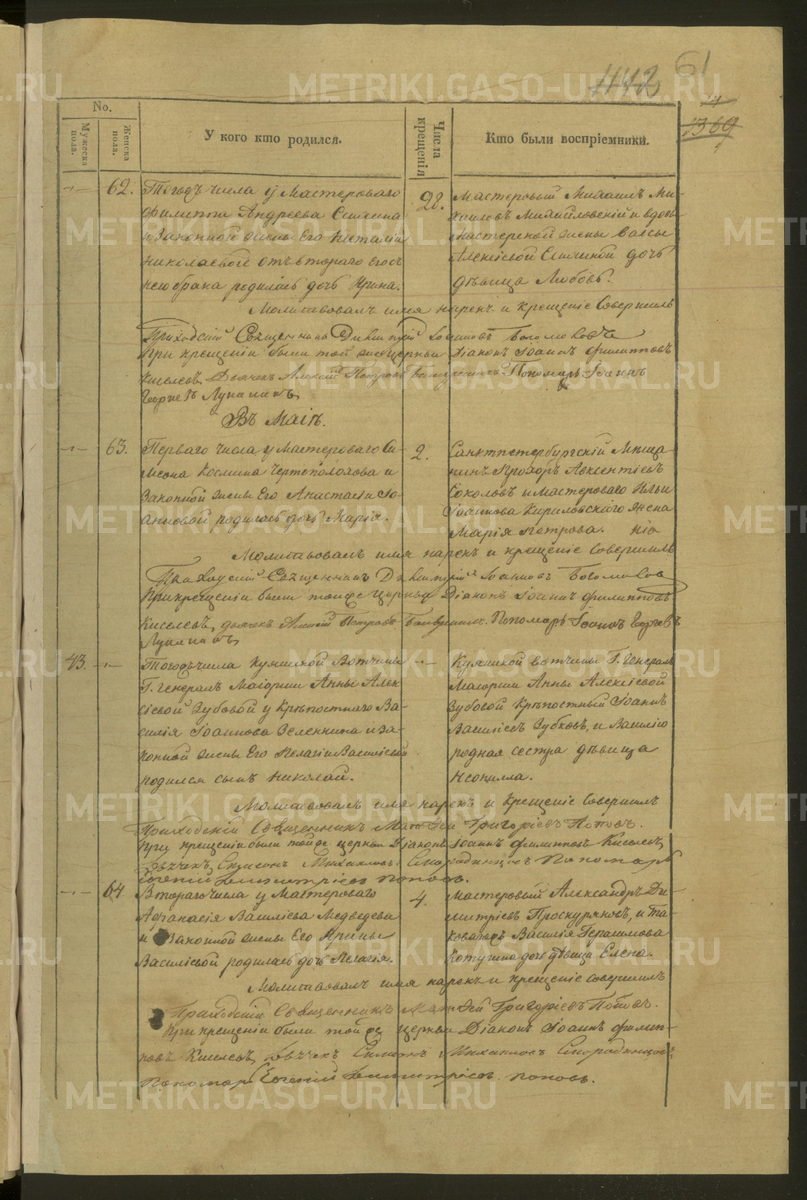 442 61
1369
No.
Мужеска пола.
Женска пола.
У кого кто родился.
Числа крещенія
Кто были воспріемники.
62. Тогожъ числа у Мастероваго
Филиппа Андреева
и Законной жены Его Наталіи
Николаевой отъ втораго его съ
нею брака родилась дочь Ирина.
28. Мастеровый Михаилъ Ми-
хаиловъ Михайловскій и вдовы
Мастерской жены
Алексіевой дочь
дѣвица Любовь.
Молитвовалъ имя нарекъ и крещеніе совершилъ
Приходскій Священникъ Димитрій Іоанновъ
При крещеніи были той же церкви Діаконъ Іоаннъ Филипповъ
Киселевъ, Дьячекъ Алексій Петровъ Пономарь Іоаннъ
Георгіевъ Лупанинъ.
Въ Маіѣ.
63. Перваго числа у Мастероваго Си-
меона Космина Чертополохова и
Законной жены Его Анастасіи Іо-
анновой родилась дочь Марія.
2. Санктпетербургскій Мѣща-
нинъ Авксентіевъ
Соколовъ и Мастероваго Ильи
Іоаннова Кириловскаго жена
Марія Петрова.
Молитвовалъ имя нарекъ и крещеніе совершилъ
Приходскій Священникъ Димитрій Іоанновъ
При крещеніи были тойже церкви Діаконъ Іоаннъ Филипповъ
Киселевъ, дьячекъ Алексій Петровъ Пономарь Іоаннъ Георгіевъ
Лупанинъ
43. Тогожъ числа Вотчины
Г. Генералъ Маіорши Анны Алек-
сіевой Зубовой у Крѣпостнаго Ва-
силія Іоаннова Зеленкина и за-
конной жены Его Пелагіи Васильевой
родился сынъ Николай.
вотчины Г. Генералъ
Маіорши Анны Алексіевой
Зубовой Крѣпостный Іоаннъ
Василіевъ Зубковъ, и Василію
родная сестра дѣвица
Неонилла.
Молитвовалъ имя нарекъ и Крещеніе Совершилъ
Приходскій Священникъ Матѳей Григоріевъ Поповъ.
При крещеніи были тойже церкви Діаконъ Іоаннъ Филипповъ Киселевъ,
Дьячекъ Симеонъ Михаиловъ Пономарь
Евгеній Димитріевъ Поповъ.
64. Втораго числа у Мастероваго
Аѳанасія Василіева Медведева
и Законной жены Его Ирины
Василіевой родилась дочь Пелагія.
4. Мастеровый Александръ Ди-
митріевъ Проскуряковъ, и Та-
Василія Герасимова
дочь дѣвица Елена.
Молитвовалъ имя нарекъ и крещеніе совершилъ
Приходскій Священникъ Матѳей Григоріевъ Поповъ.
При крещеніи были той же церкви Діаконъ Іоаннъ Филип-
повъ Киселевъ, Дьячекъ Симеонъ Михаиловъ
Пономарь Евгеній Димитріевъ Поповъ.
METRIKI.GASO-URAL.RU